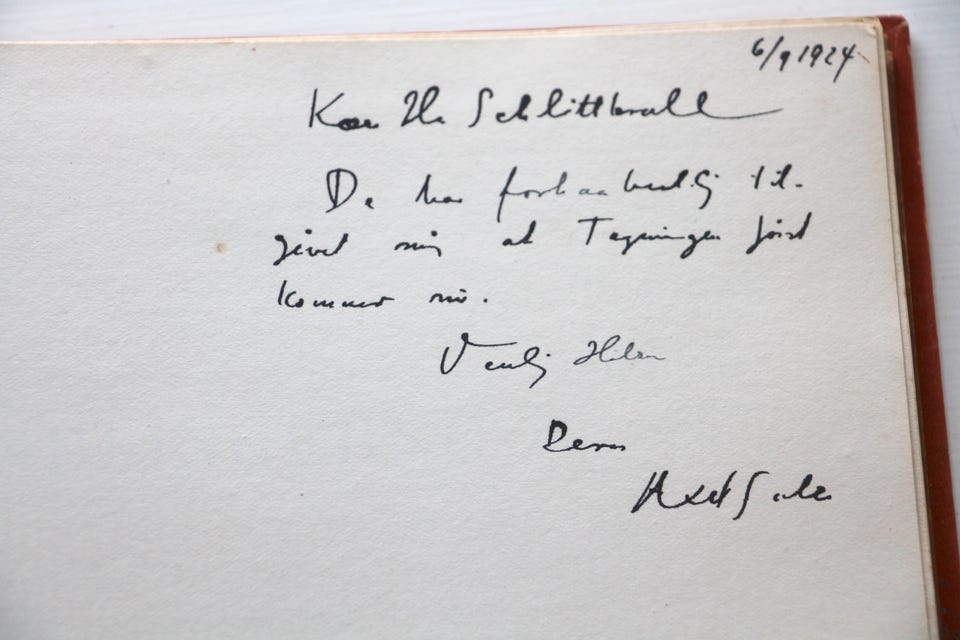 6/9 1924
Kære Hr Schlittkrull
De har forhaabentlig til-
givet mig at Tegningen først
kommer nu.
Venlig Hilsen
Deres
Axel Salto